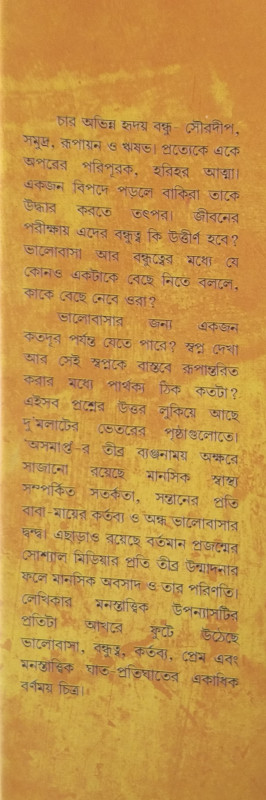 চার অভিন্ন হৃদয় বন্ধু- সৌরদীপ,
সমুদ্র, রূপায়ন ও ঋষভ। প্রত্যেকে একে
অপরের পরিপূরক, হরিহর আত্মা।
একজন বিপদে পড়লে বাকিরা তাকে
উদ্ধার করতে তৎপর। জীবনের
পরীক্ষায় এদের বন্ধুত্ব কি উত্তীর্ণ হবে?
ভালোবাসা আর বন্ধুত্বের মধ্যে যে
কোনও একটাকে বেছে নিতে বললে,
কাকে বেছে নেবে ওরা?
ভালোবাসার জন্য একজন
কতদূর পর্যন্ত যেতে পারে? স্বপ্ন দেখা
আর সেই স্বপ্নকে বাস্তবে রূপান্তরিত
করার মধ্যে পার্থক্য ঠিক কতটা?
এইসব প্রশ্নের উত্তর লুকিয়ে আছে
দু'মলাটের ভেতরের পৃষ্ঠাগুলোতে।
'অসমাপ্ত'-র তীব্র ব্যঞ্জনাময় অক্ষরে
সাজানো রয়েছে মানসিক স্বাস্থ্য
সম্পর্কিত সতর্কতা, সন্তানের প্রতি
বাবা-মায়ের কর্তব্য ও অন্ধ ভালোবাসার
দ্বন্দ্ব। এছাড়াও রয়েছে বর্তমান প্রজন্মের
সোশ্যাল মিডিয়ার প্রতি তীব্র উন্মাদনার
ফলে মানসিক অবসাদ ও তার পরিণতি।
লেখিকার মনস্তাত্ত্বিক উপন্যাসটির
প্রতিটা আখরে ফুটে উঠেছে
ভালোবাসা, বন্ধুত্ব, কর্তব্য, প্রেম এবং
মনস্তাত্ত্বিক ঘাত-প্রতিঘাতের একাধিক
বর্ণময় চিত্র।